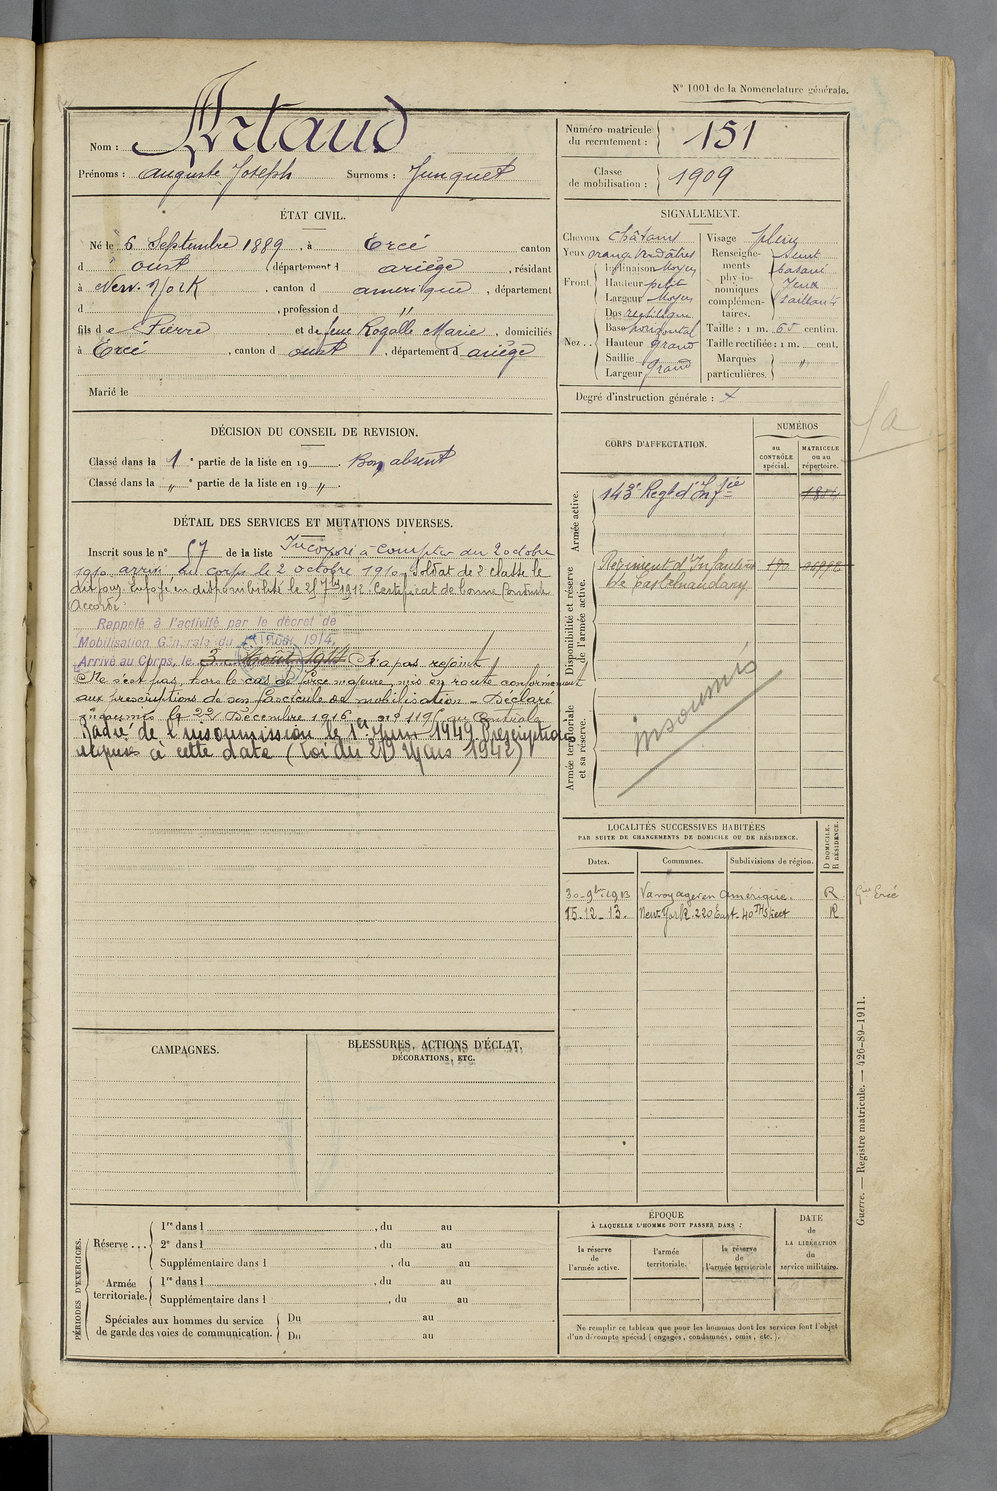 N° 1001 de la Nomenclature générale.
Nom : Artaud
Prénoms : Auguste Joseph Surnoms : Junquet
Numéro matricule du recrutement : 151
Classe de mobilisation : 1909
ÉTAT CIVIL.
Né le 6 Septembre 1889, à Ercé canton
d Oust, département d ariège, résidant
à New-York, canton d amérique, département
d , profession d "
fils de Pierre et de feue Rogalle Marie, domiciliés
à Ercé, canton d oust, département d ariège
Marié le
SIGNALEMENT.
Cheveux châtains
Yeux orangé verdâtres
Front. Inclinaison Moyen
Hauteur petit
Largeur Moyen
Nez.. Dos rectiligne
Base horizontal
Hauteur grand
Saillie
Largeur grand
Visage plein
Renseignements physionomiques complémentaires.
teint basané
yeux saillants
Taille : 1 m. 65 centim.
Taille rectifiée : 1 m. cent.
Marques particulières. "
Degré d'instruction générale : X
DÉCISION DU CONSEIL DE REVISION.
Classé dans la 1 e partie de la liste en 19 . Bon absent
Classé dans la " e partie de la liste en 19 ".
DÉTAIL DES SERVICES ET MUTATIONS DIVERSES.
Inscrit sous le n° 57 de la liste Incorporé à compter du 2 octobre
1910 arrivé au corps le 2 octobre 1910 Soldat de 2e classe le
dit jour. Envoyé en disponibilité le 25 7bre 1912. Certificat de bonne Conduite
Accordé.
Rappelé à l'activité par le décret de
Mobilisation Générale du Août 1914.
Arrivé au Corps, le 3 Août 1914 N'a pas rejoint
Ne s'est pas, hors le cas de force majeure, mis en route conformément
aux prescriptions de son fascicule de mobilisation - Déclaré
insoumis le 22 Décembre 1916 au Contrôle
Radié de l'insoumission le 1er Juin 1949. Prescription
acquise à cette date (Loi du 29 Mars 1942)
CORPS D'AFFECTATION.
NUMÉROS
au CONTRÔLE spécial.
MATRICULE ou au répertoire.
Armée active.
143e Regt d'Infie 1854
Disponibilité et réserve de l'armée active.
Régiment d'Infanterie
de Castelnaudary
Armée territoriale et sa réserve.
insoumis
LOCALITÉS SUCCESSIVES HABITÉES
PAR SUITE DE CHANGEMENTS DE DOMICILE OU DE RÉSIDENCE.
Dates. Communes. Subdivisions de région. D DOMICILE. R RÉSIDENCE.
30-9bre 1913 Va voyager en Amérique. R Ercé
15-12-13. New York 220 East 40TH Street R
CAMPAGNES.
BLESSURES, ACTIONS D'ÉCLAT,
DÉCORATIONS, ETC.
PÉRIODES D'EXERCICES.
Réserve ... 1re dans l , du au
2e dans l , du au
Supplémentaire dans l , du au
Armée territoriale. 1re dans l , du au
Supplémentaire dans l , du au
Spéciales aux hommes du service de garde des voies de communication. Du au
Du au
ÉPOQUE
À LAQUELLE L'HOMME DOIT PASSER DANS :
la réserve de l'armée active.
l'armée territoriale.
la réserve de l'armée territoriale
DATE de LA LIBÉRATION du service militaire.
Ne remplir ce tableau que pour les hommes dont les services font l'objet
d'un décompte spécial (engagés, condamnés, omis, etc.).
Guerre. — Registre matricule. — 426-89-1911.